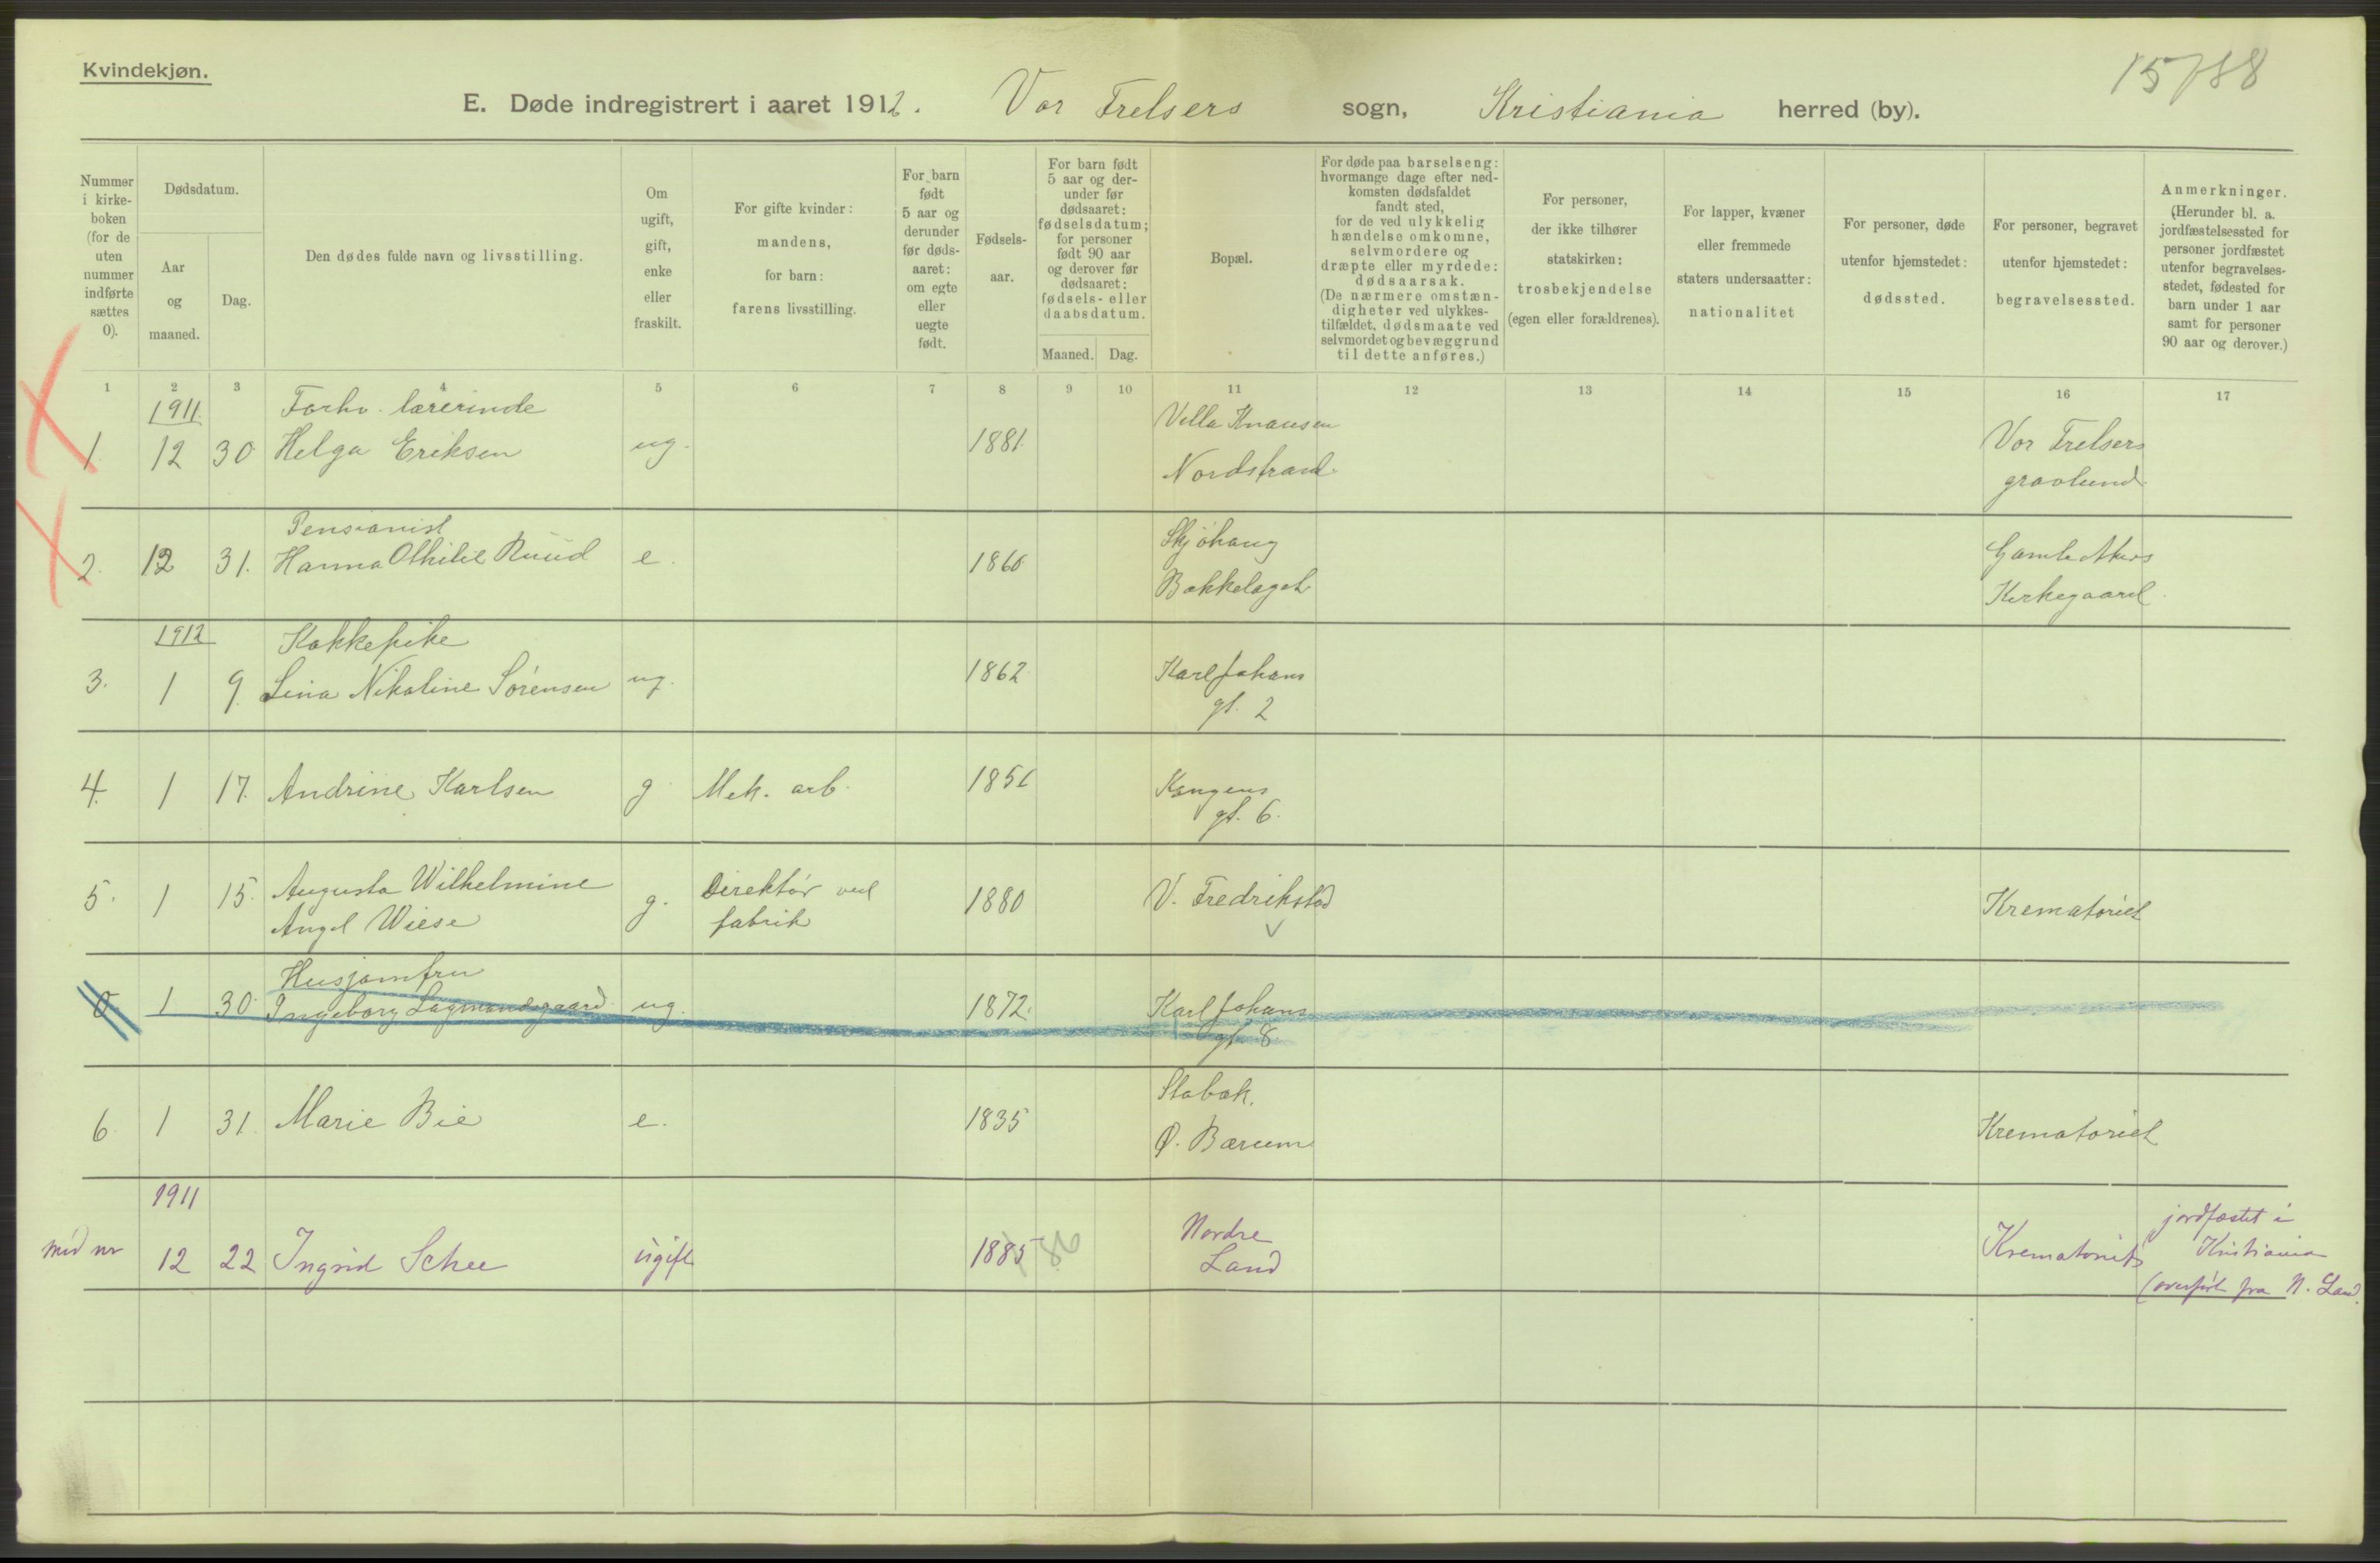 Kvindekjøn.
15788
E. Døde indregistrert i aaret 1912. Vor Frelsers sogn, Kristiania herred (by).
Nummer i kirke- boken (for de uten nummer indførte sættes 0).
Dødsdatum.
Aar og maaned.
Dag.
Den dødes fulde navn og livsstilling.
Om ugift, gift, enke eller fraskilt.
For gifte kvinder: mandens, for barn: farens livsstilling.
For barn født 5 aar og derunder før døds- aaret: om egte eller uegte født.
Fødsels- aar.
For barn født 5 aar og der- under før dødsaaret: fødselsdatum; for personer født 90 aar og derover før dødsaaret: fødsels- eller daabsdatum.
Maaned. Dag.
Bopæl.
For døde paa barselseng: hvormange dage efter ned- komsten dødsfaldet fandt sted, for de ved ulykkelig hændelse omkomne, selvmordere og dræpte eller myrdede: dødsaarsak. (De nærmere omstæn- digheter ved ulykkes- tilfældet, dødsmaate ved selvmordet og bevæggrund til dette anføres.)
For personer, der ikke tilhører statskirken: trosbekjendelse (egen eller forældrenes).
For lapper, kvæner eller fremmede staters undersaatter: nationalitet
For personer, døde utenfor hjemstedet: dødssted.
For personer, begravet utenfor hjemstedet: begravelsessted.
Anmerkninger. (Herunder bl. a. jordfæstelsessted for personer jordfæstet utenfor begravelses- stedet, fødested for barn under 1 aar samt for personer 90 aar og derover.)
1 2 3 4 5 6 7 8 9 10 11 12 13 14 15 16 17
1911 Forhv. lærerinde Villa Knausen
1. 12 30 Helga Eriksen ug. 1881 Nordstrand. Vor Frelsers gravlund.
Pensionist Skjøhaug
2. 12 31. Hanna Othilie Ruud e. 1860 Bækkelaget Gamle Akers Kirkegaard.
1912 Kokkepike
3. 1 9. Lina Nikoline Sørensen ug. 1862 Karl Johans gt. 2
4. 1 17. Andrine Karlsen g. Mek. arb. 1851 Kongens gt. 6.
5. 1 15. Augusta Wilhelmine Angel Wiese g. Direktør ved fabrik 1880 V. Fredrikstad Krematoriet
Husjomfru
0 1 30. Ingeborg Lagmandsgaard ug. 1872. Karl Johans gt. 8
6. 1 31. Marie Bie e. 1835 Stabæk. Ø. Bærum Krematoriet
1911
12 22 Ingrid Schee ugift 1885 86 Nordre Land Krematoriet jordfæstet i Kristiania (overført fra N. Land.